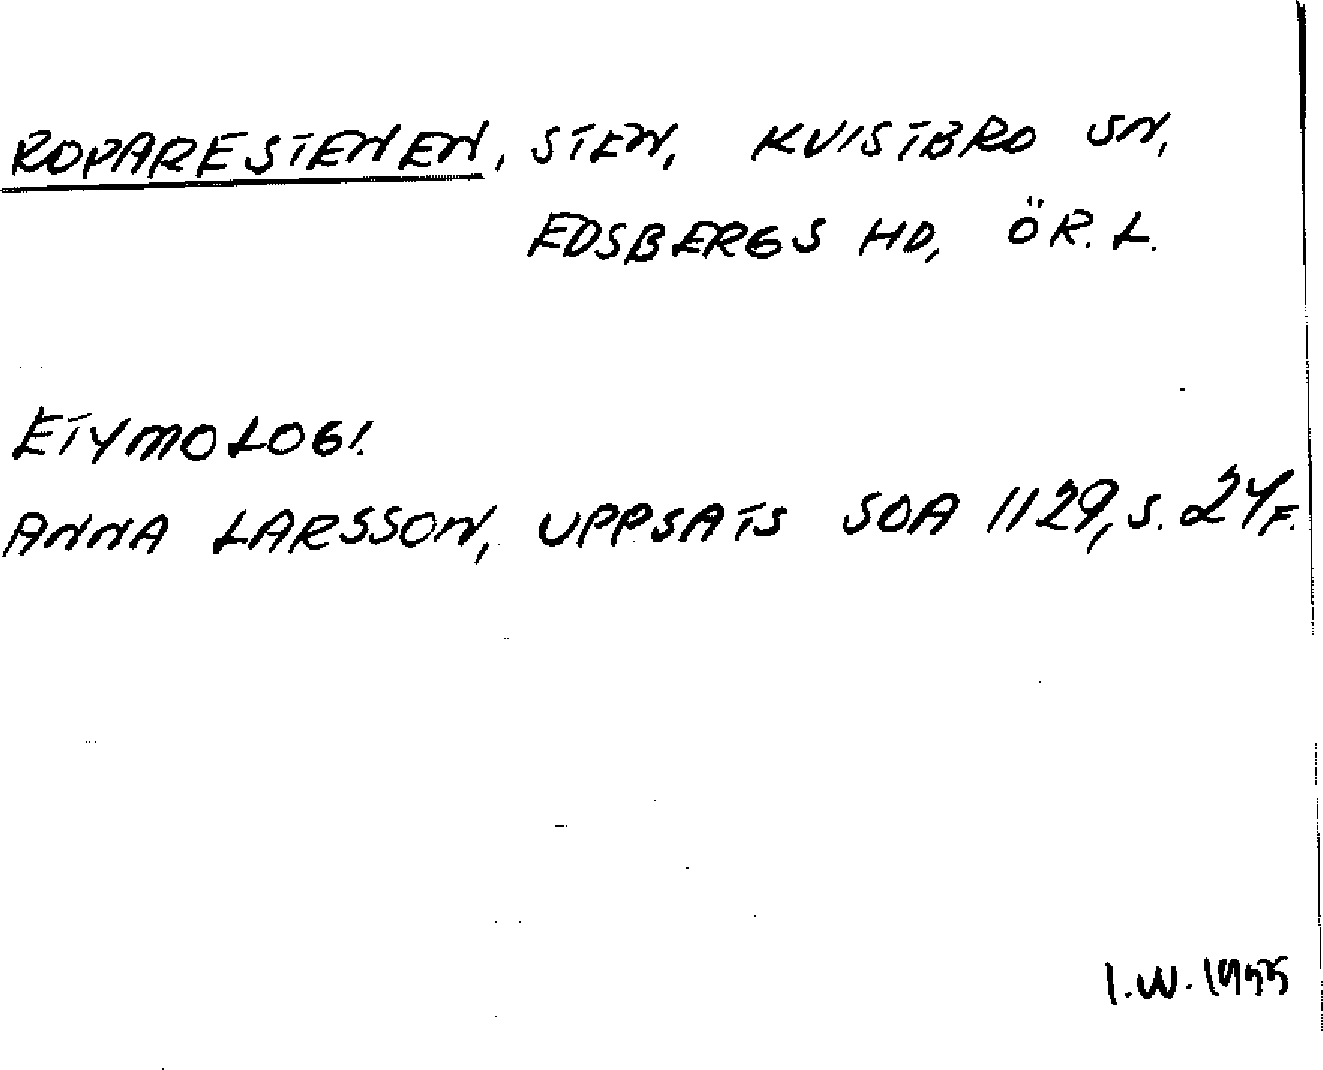 ROPARESTENEN, STEN, KVISTBRO SN,
EDSBERGS HD, ÖR. L.
ETYMOLOGI.
ANNA LARSSON, UPPSATS SOA 1129, S. 24 F.
I.W. 1955